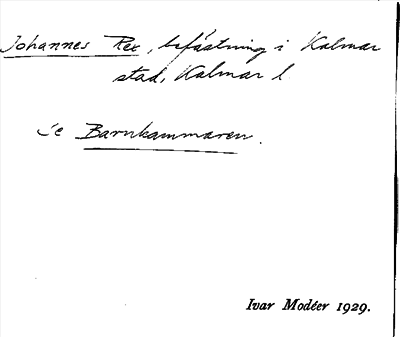 Johannes Rex, befästning i Kalmar
stad, Kalmar l
Se Barnkammaren.
Ivar Modéer 1929.